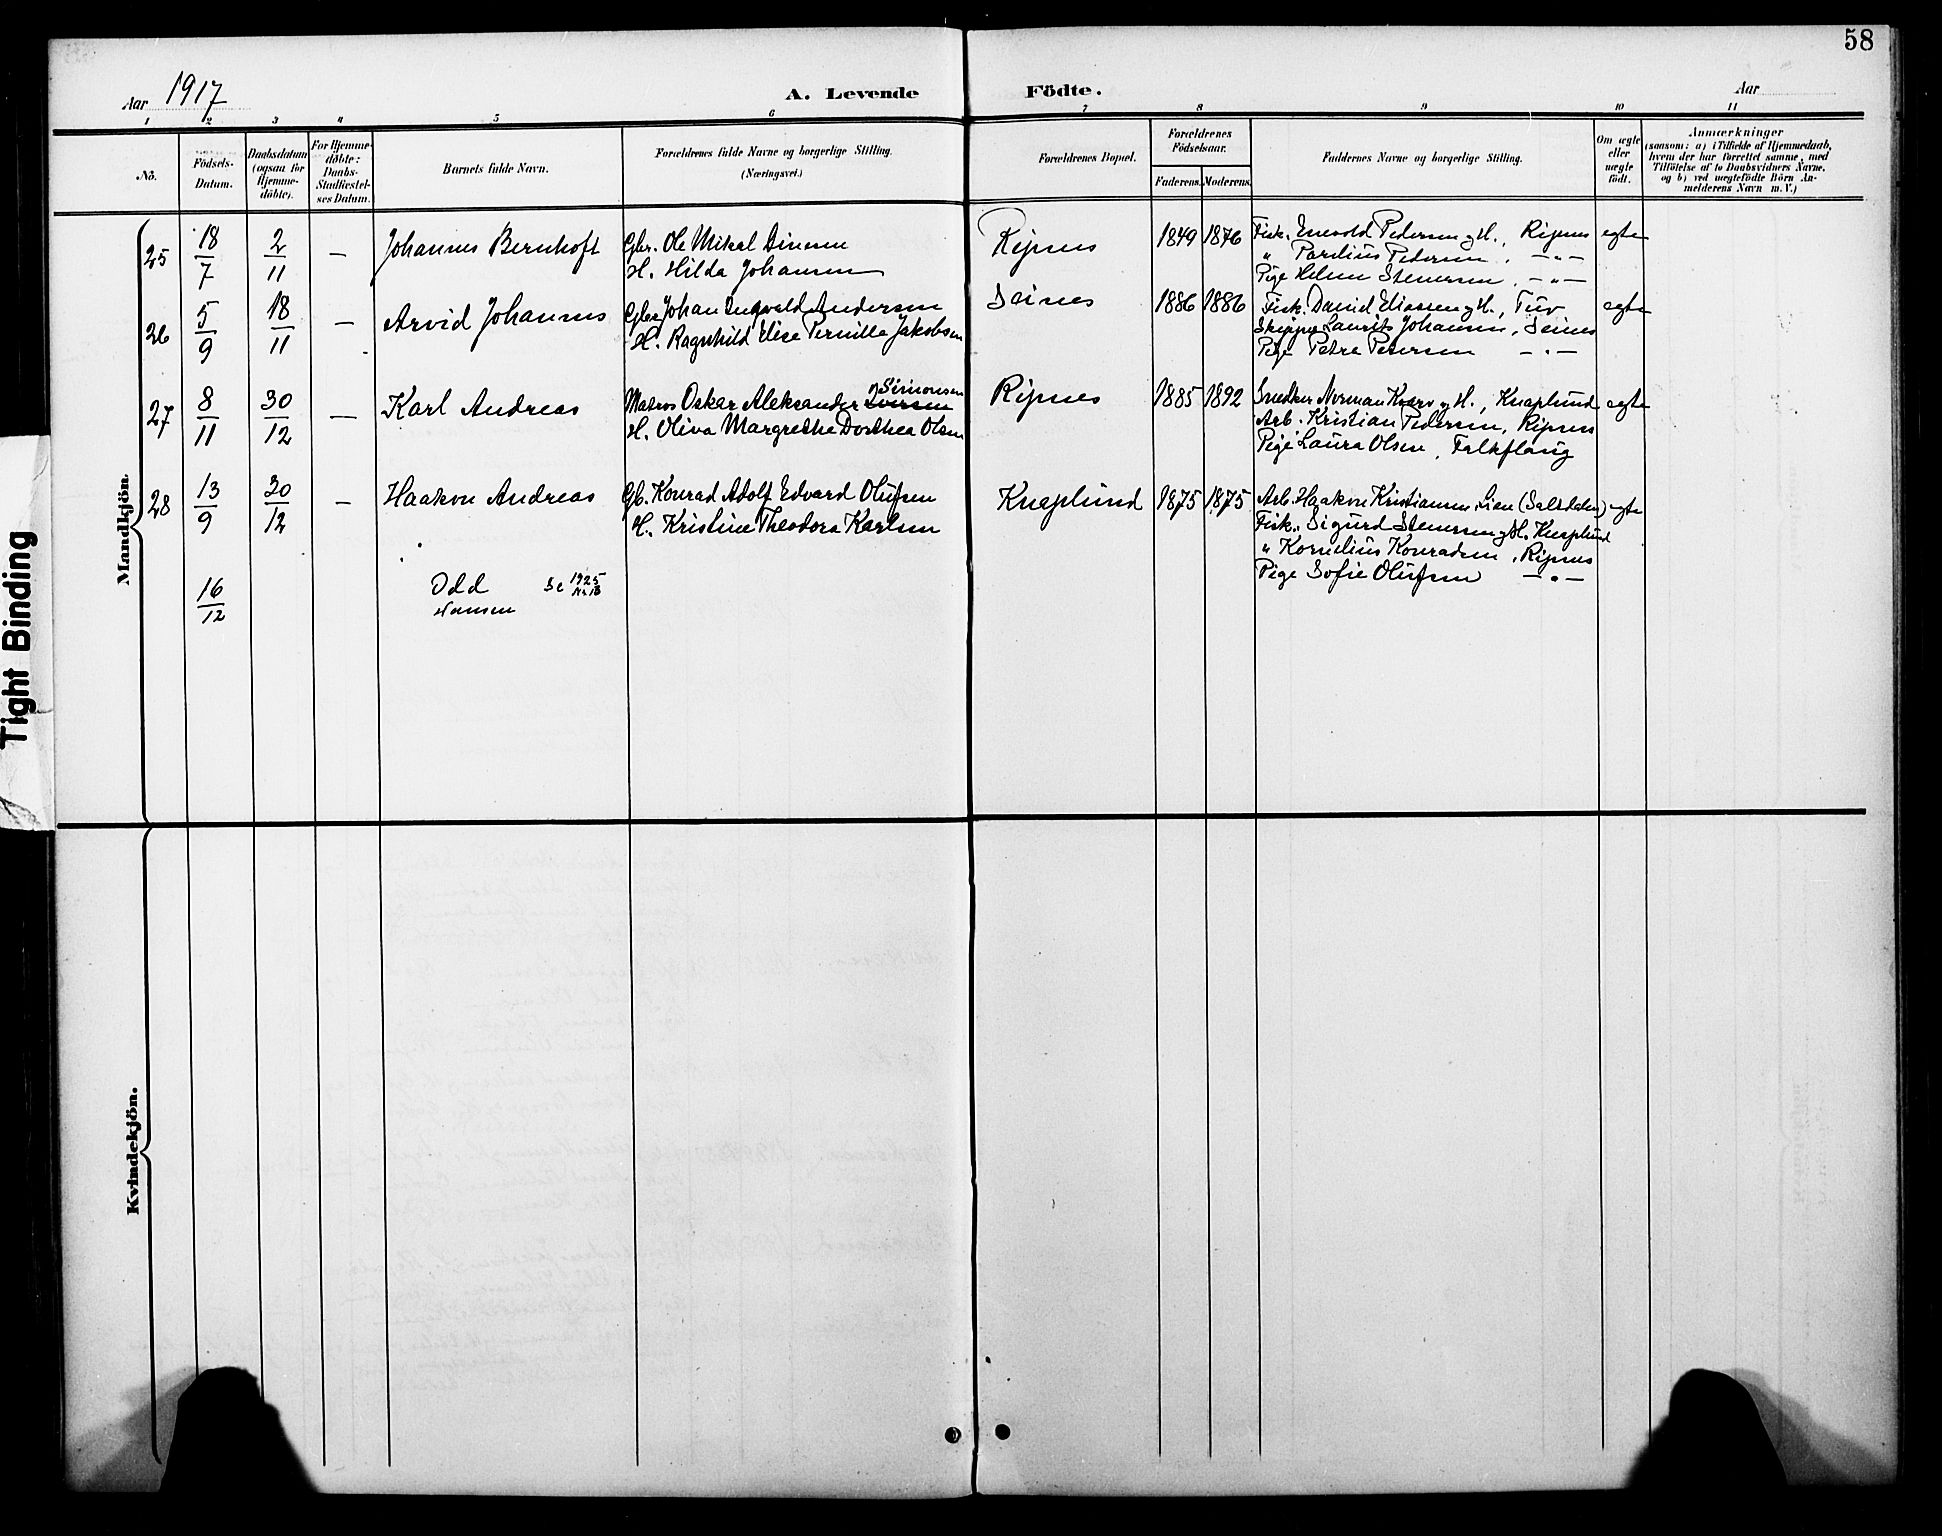 58
Aar 1917 A. Levende Födte. Aar
1 2 3 4 5 6 7 8 9 10 11
No.
Födsels-Datum.
Daabsdatum (ogsaa for Hjemmedöbte).
For Hjemmedöbte: Daabs-Stadfæstelses Datum.
Barnets fulde Navn.
Forældrenes fulde Navne og borgerlige Stilling. (Næringsvei.)
Forældrenes Bopæl.
Forældrenes Födselsaar.
Faderens. Moderens.
Faddernes Navne og borgerlige Stilling.
Om ægte eller uægte födt.
Anmærkninger
(saasom: a) i Tilfælde af Hjemmedaab, hvem der har forrettet samme, med Tilföielse af to Daabsvidners Navne, og b) ved uægtefödte Börn Anmelderens Navn m. V.)
Mandkjön.
25 18/7 2/11 — Johannes Bernhoft Gbr. Ole Mikal Dinesen Ripnes 1849 1876 Fisk. Enevold Pedersen og H., Ripnes egte
H. Hilda Johansen " Parelius Pedersen, —"—
Pige Helene Stenersen, —"—
26 5/9 18/11 — Arvid Johannes Gbr. Johan Ingvald Andersen Seines 1886 1886 Fisk. David Eliassen og H., Tuv egte
H. Ragnhild Elise Pernille Jakobsen Skipper Laurits Johansen, Seines
Pige Petra Petersen —"—
27 8/11 30/12 — Karl Andreas Matros Oskar Aleksander Iversen Simonsen Ripnes 1885 1892 Snedker Norman Kværv og H., Knaplund egte
H. Oliva Margrethe Dorthea Olsen Arb. Kristian Pedersen, Ripnes
Pige Laura Olsen, Falkflaug
28 13/9 30/12 — Haakon Andreas Gb. Konrad Adolf Edvard Olufsen Knaplund 1875 1875 Arb. Haakon Kristiansen, Lian (Saltdalen) egte
H. Kristine Theodora Karlsen Fisk. Sigurd Stenersen og H. Knaplund
" Kornelius Konradsen, Ripnes
Pige Sofie Olufsen —"—
16/12 Odd Se 1925 Nr 18
Hansen
Kvindekjön.
Tight Binding